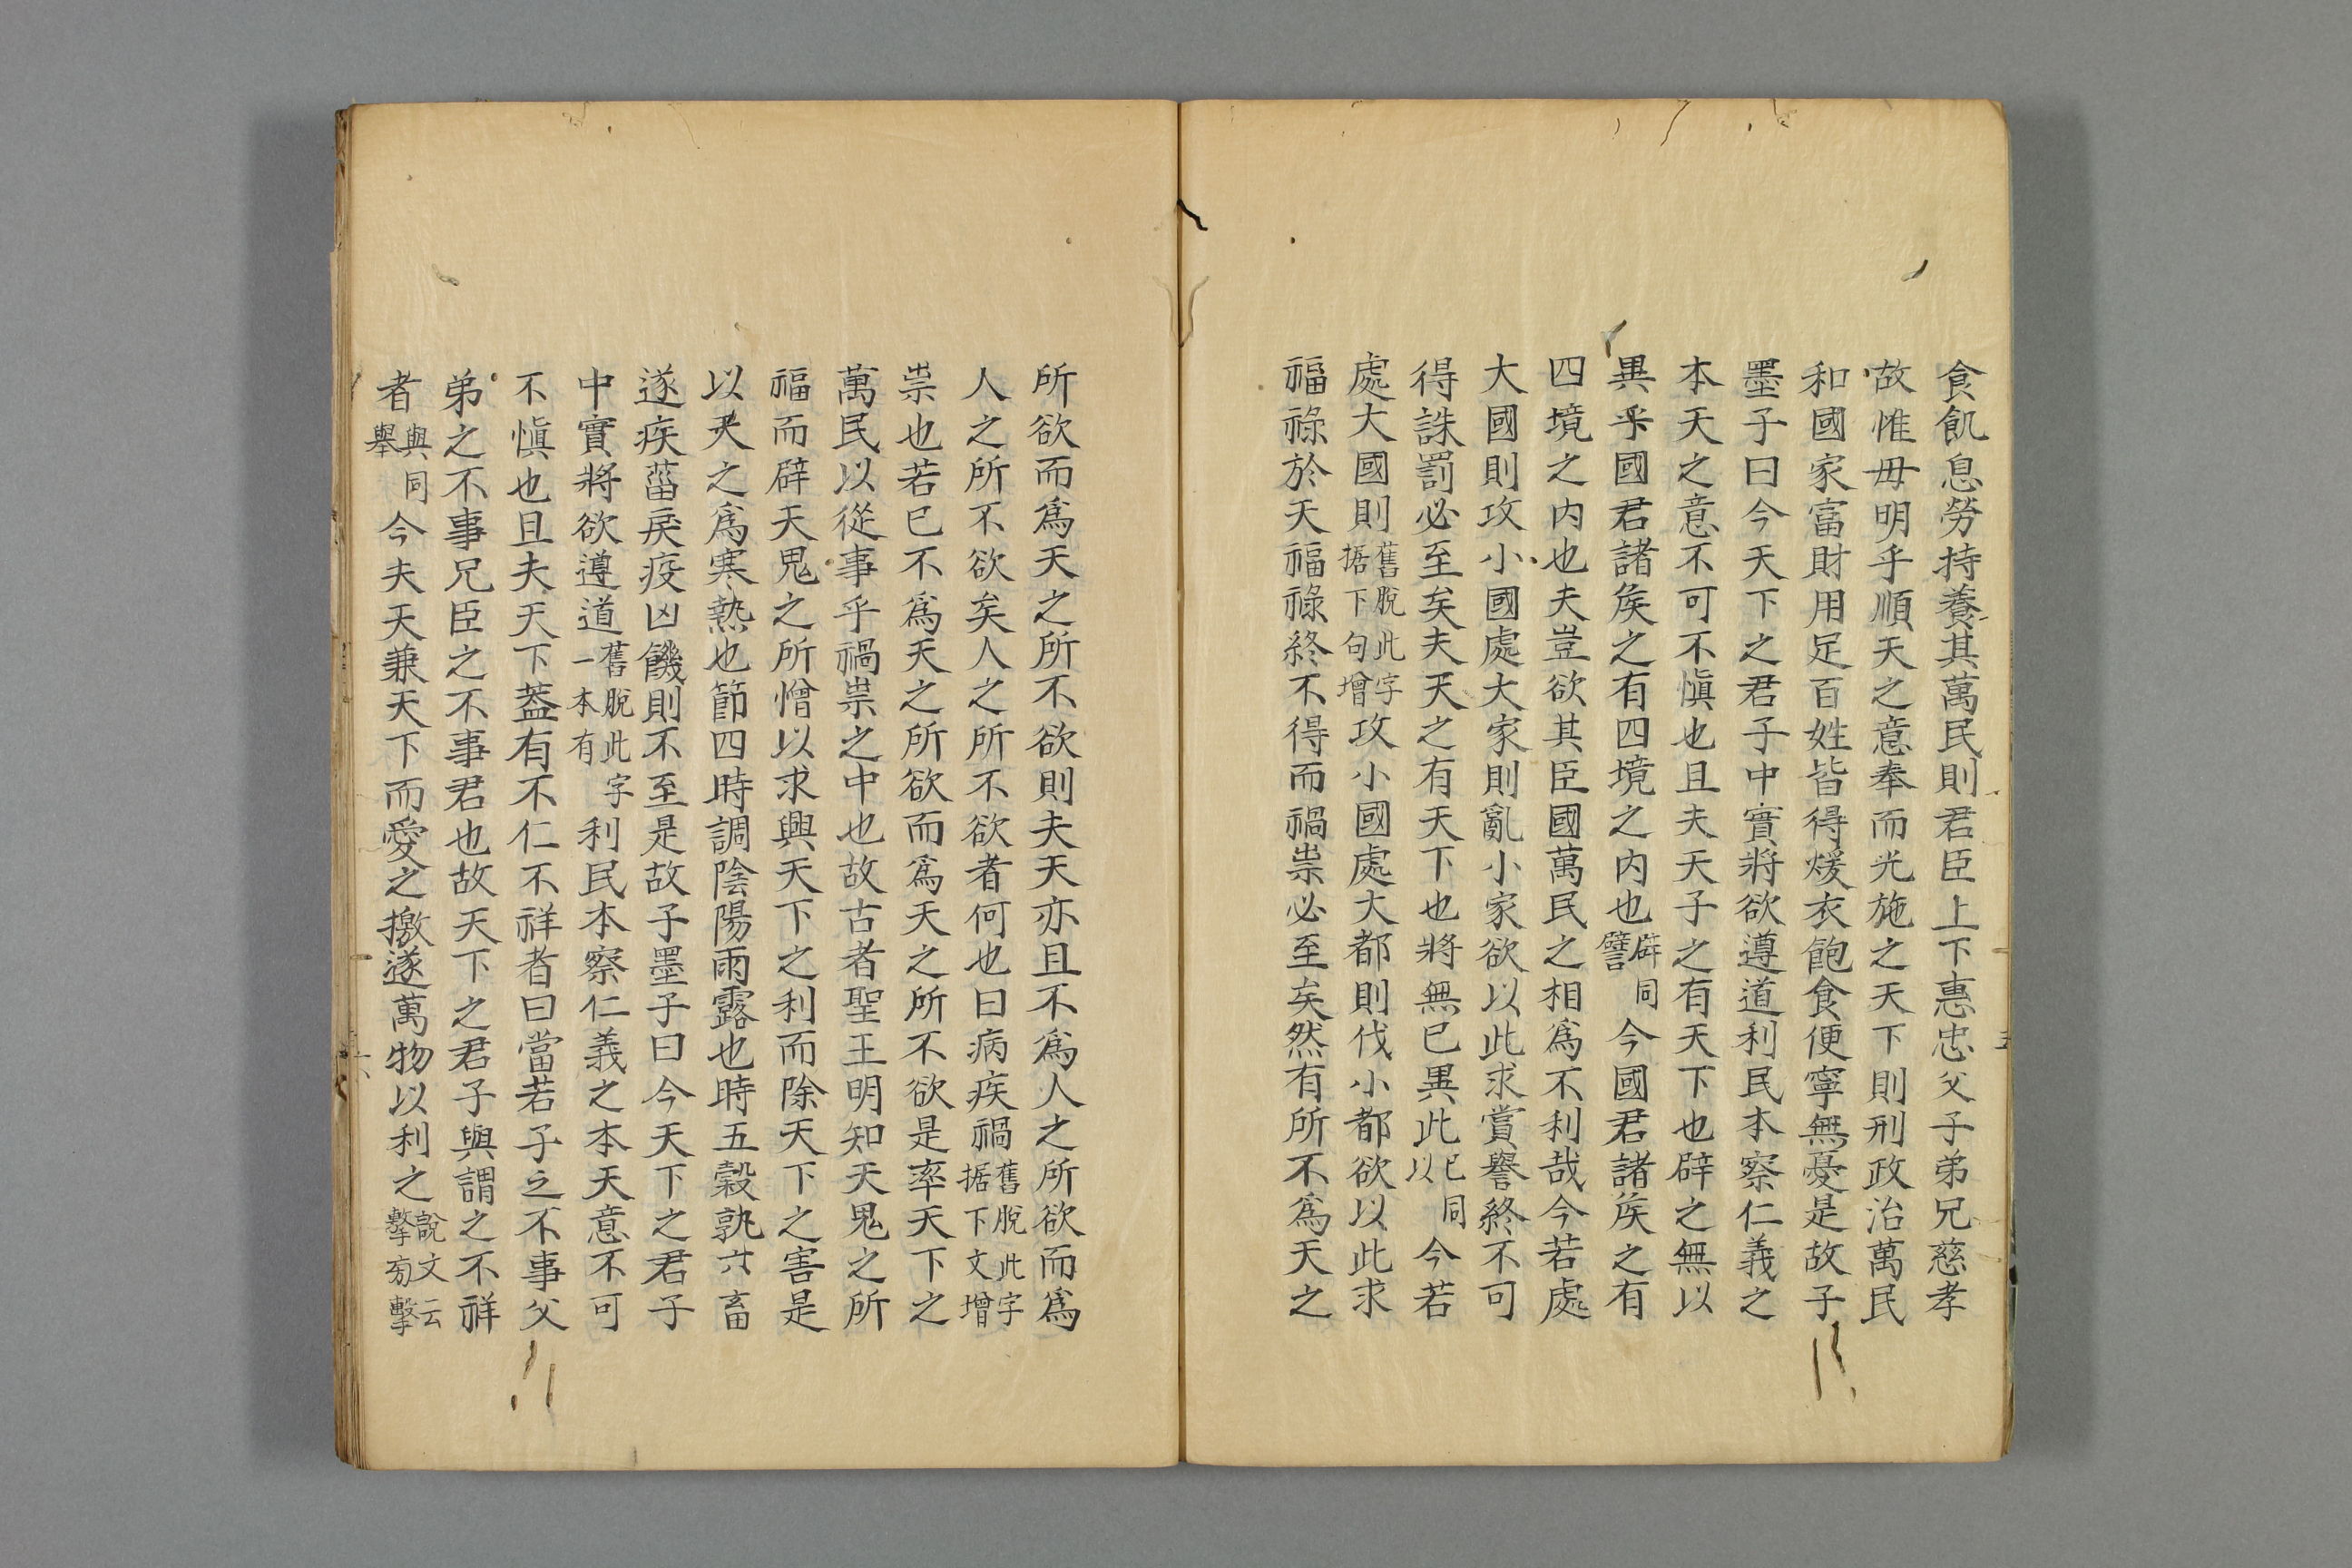 食飢息勞持養其萬民則君臣上下惠忠父子弟兄慈孝
故惟毋明乎順天之意奉而光施之天下則刑政治萬民
和國家富財用足百姓皆得煖衣飽食便寧無憂是故子
墨子曰今天下之君子中實將欲遵道利民本察仁義之
本天之意不可不慎也且夫天子之有天下也辟之無以
異乎國君諸矦之有四境之内也辟同譬今國君諸矦之有
四境之内也夫豈欲其臣國萬民之相爲不利哉今若處
大國則攻小國處大家則亂小家欲以此求賞譽終不可
得誅罰必至矣夫天之有天下也將無已異此已同以今若
處大國則舊脫此字据下句增攻小國處大都則伐小都欲以此求
福祿於天福祿終不得而禍祟必至矣然有所不爲天之
所欲而爲天之所不欲則夫天亦且不爲人之所欲而爲
人之所不欲矣人之所不欲者何也曰病疾禍舊脫此字据下文增
祟也若已不爲天之所欲而爲天之所不欲是率天下之
萬民以從事乎禍祟之中也故古者聖王明知天鬼之所
福而辟天鬼之所憎以求興天下之利而除天下之害是
以天之爲寒熱也節四時調陰陽雨露也時五穀孰六畜
遂疾菑戾疫凶饑則不至是故子墨子曰今天下之君子
中實將欲遵道舊脫此字一本有利民本察仁義之本天意不可
不慎也且夫天下葢有不仁不祥者曰當若子之不事父
弟之不事兄臣之不事君也故天下之君子與謂之不祥
者與同舉今夫天兼天下而愛之撽遂萬物以利之說文云擊旁擊